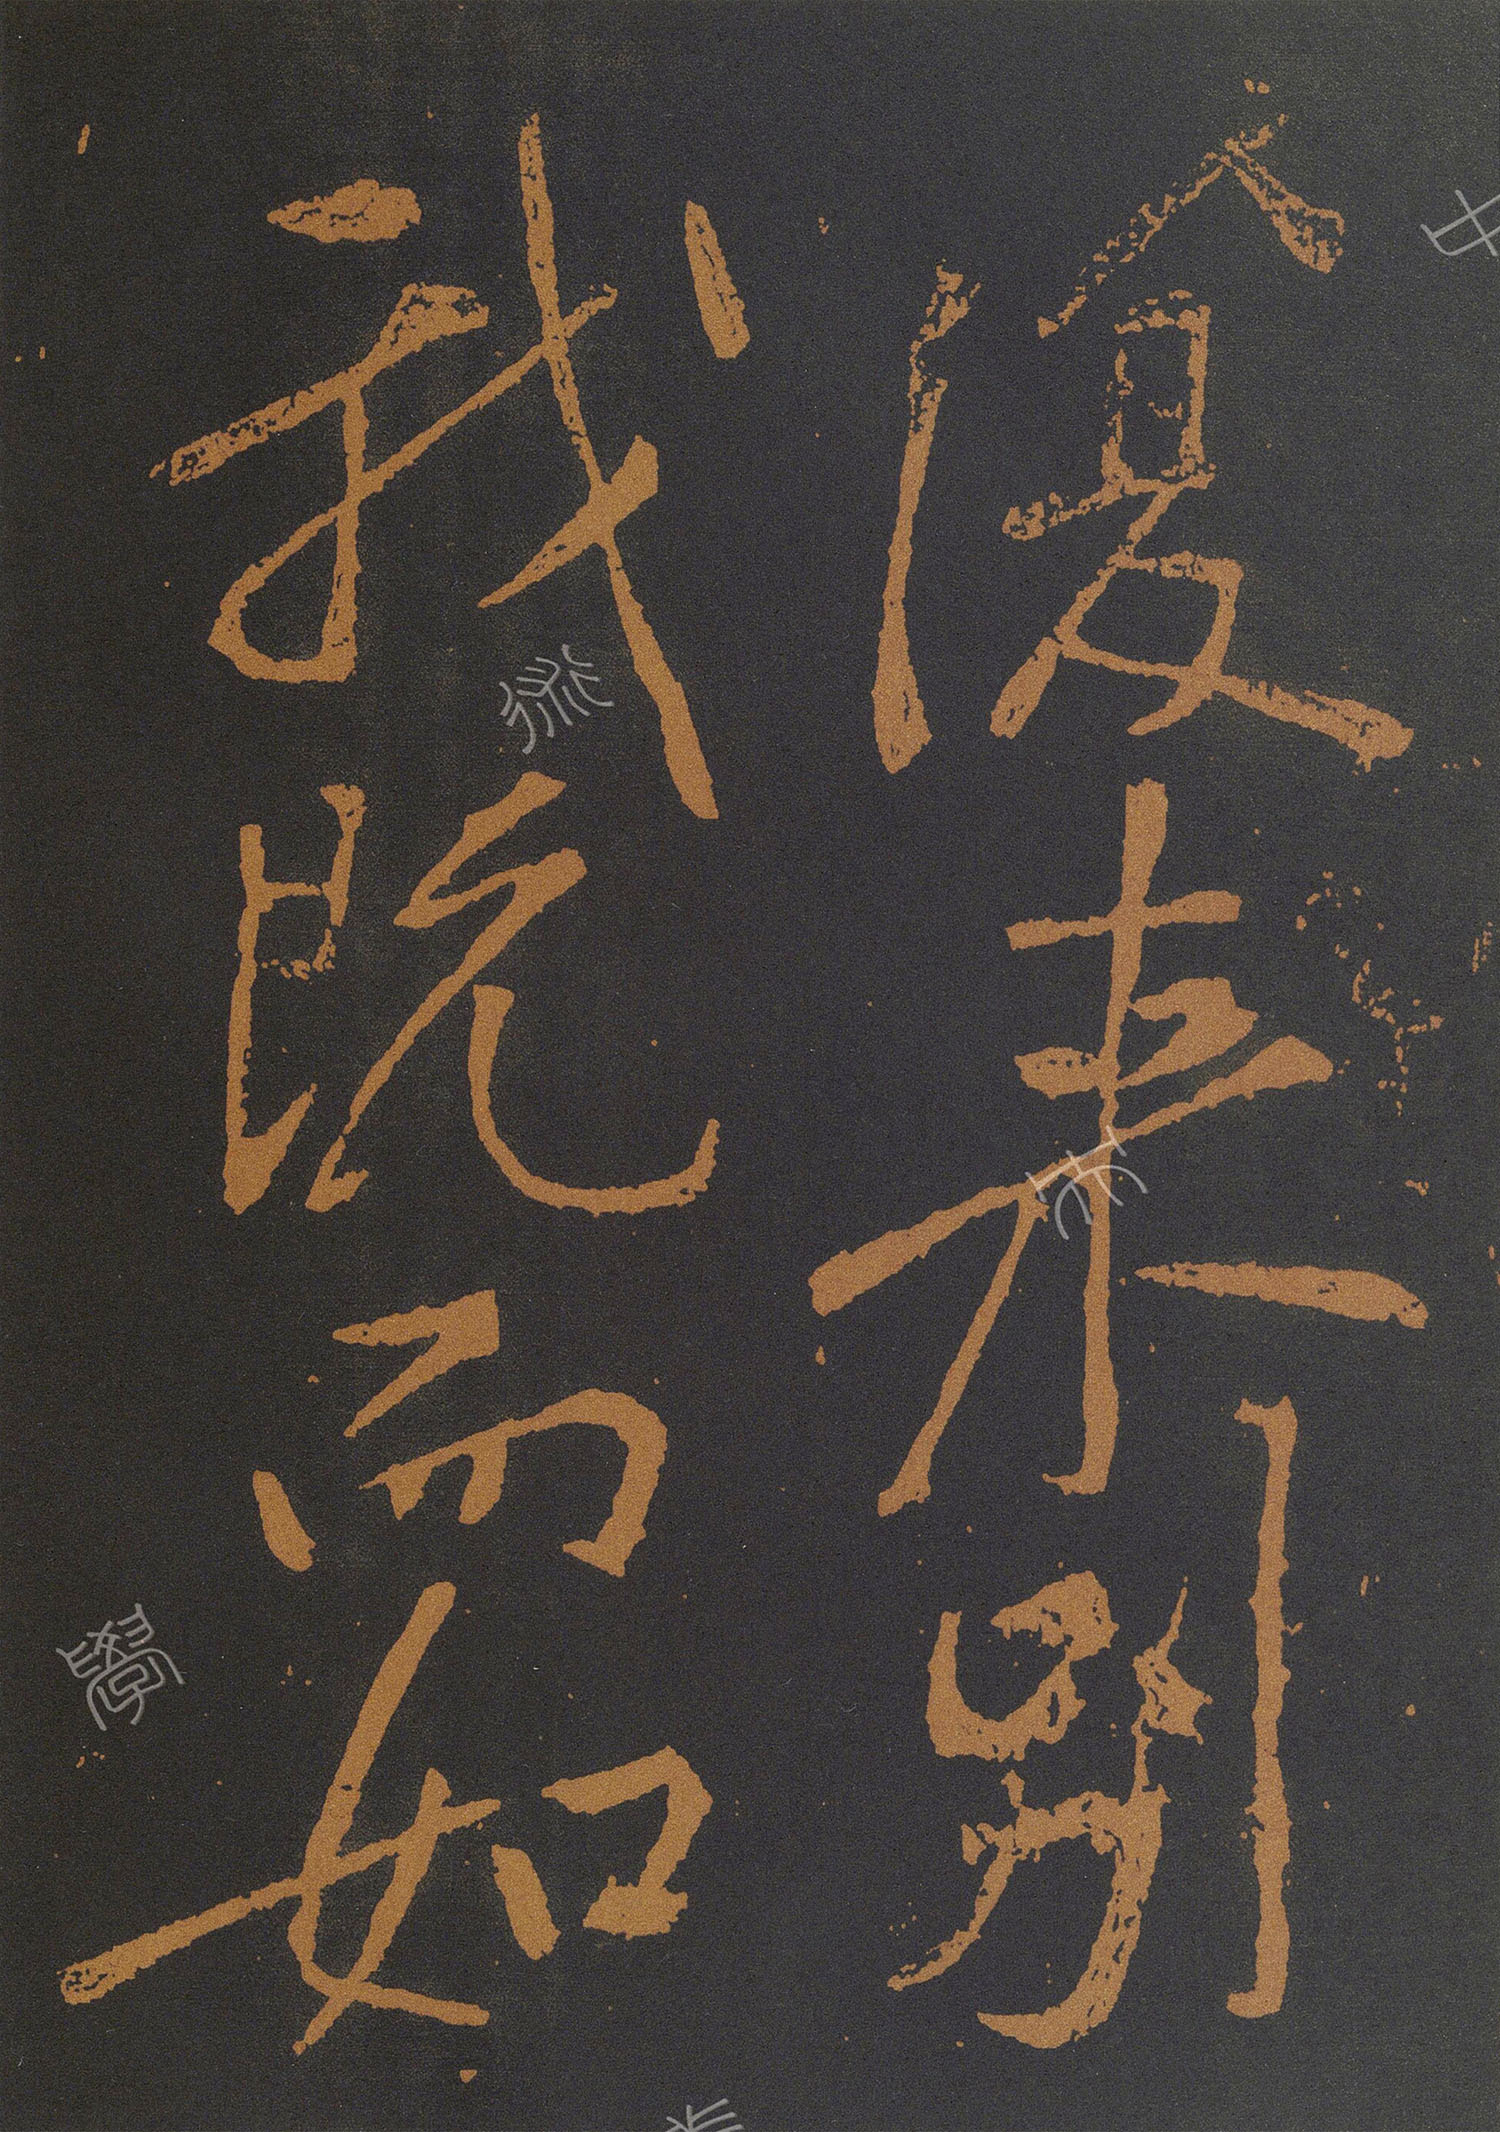 復來別
我既而如